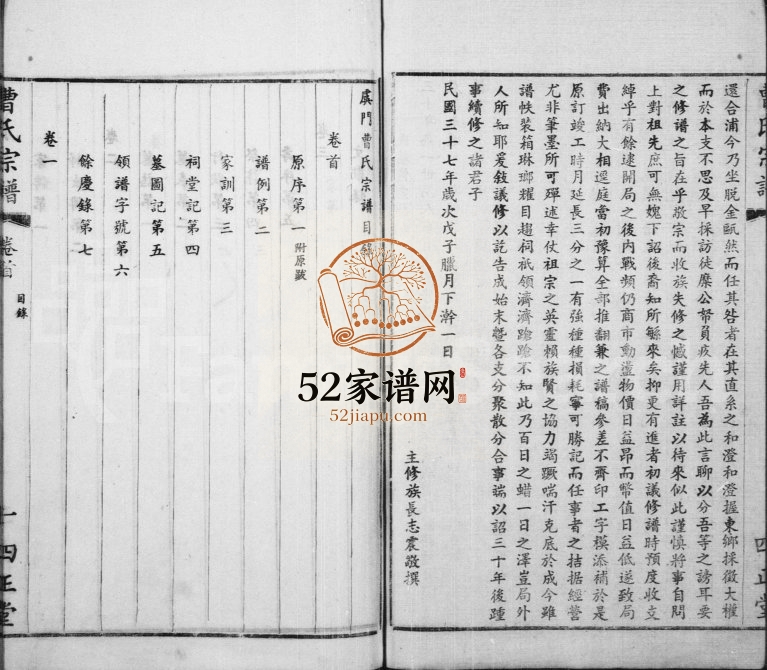 還合浦今乃坐脱金甌然而任其咎者在其直系之和澄和澄握東鄉採徵大權
而於本支不思及早採訪徒糜公帑負疚先人吾為此言聊以分吾等之謗耳要
之修譜之旨在乎敬宗而收族失修之憾謹用詳註以待來似此謹慎將事自問
上對祖先庶可無媿下詔後裔知所繇來矣抑更有進者初議修譜時預度收支
綽乎有餘逮開局之後內戰頻仍商市動盪物價日益昂而幣值日益低遂致局
費出納大相逕庭當初豫算全部推翻兼之譜稿參差不齊印工字模添補於是
原訂竣工時月延長三分之一有強種種損耗寧可勝記而任事者之拮据經營
尤非筆墨所可殫述幸仗祖宗之英靈賴族賢之協力竭蹶喘汗克底於成今雖
譜帙裝箱琳瑯耀目趨祠祇領濟濟蹌蹌不知此乃百日之蜡一日之澤豈局外
人所知耶爰敘議修以訖告成始末暨各支分聚散分合事端以詔三十年後踵
事續修之諸君子
民國三十七年歲次戊子臘月下澣一日
主修族長志震敬撰
曹氏宗譜
四正堂
虞門曹氏宗譜目錄
卷首
原序第一 附原跋
譜例第二
家訓第三
祠堂記第四
墓圖記第五
領譜字號第六
餘慶錄第七
卷一
曹氏宗譜
卷首
目錄
一
四正堂
52家谱网
52jiapu.com